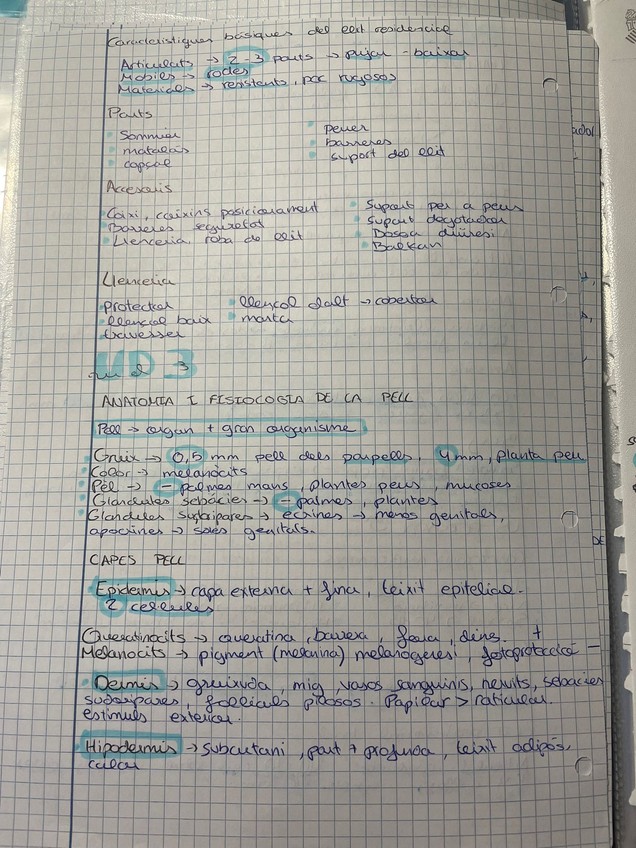 Característiques bàsiques del llit residencial
Articulats → 2 3 parts → pujar - baixar
Mobiles → rodes
Materials → resistents, poc rugosos
Parts
Sommier
matalàs
capçal
peuer
barreres
suport del llit
Accesoris
Coixí, coixins posicionament
Barreres seguretat
Llenceria, roba de llit
Suport per a peus
Suport degotador
Bossa diüresi
Balkan
Llenceria
protector
llençol baix
travesser
llençol dalt → cobertor
manta
UD 3
ANATOMIA I FISIOLOGIA DE LA PELL
Pell → organ + gran organisme
Gruix → 0,5 mm pell dels parpells, 4 mm, planta peu
Color → melanocits
Pèl → - palmes mans, plantes peus, mucoses
Glandules sebàcies → - palmes, plantes
Glandules sudoripares → ecrines → menos genitals,
apocrines → sols genitals.
CAPES PELL
Epidermis → capa externa + fina, teixit epitelial.
2 cel·lules
Queratinocits → queratina, barrera, fora, dins. +
Melanocits → pigment (melanina) melanogenesi, fotoprotecció -
Dermis → gruixuda, mig, vasos sanguinis, nervits, sebàcies
sudoripares, fol·licles pilosos. Papilar > reticular.
estimuls exterior.
Hipodermis → subcutani, part + profunda, teixit adipós,
calor